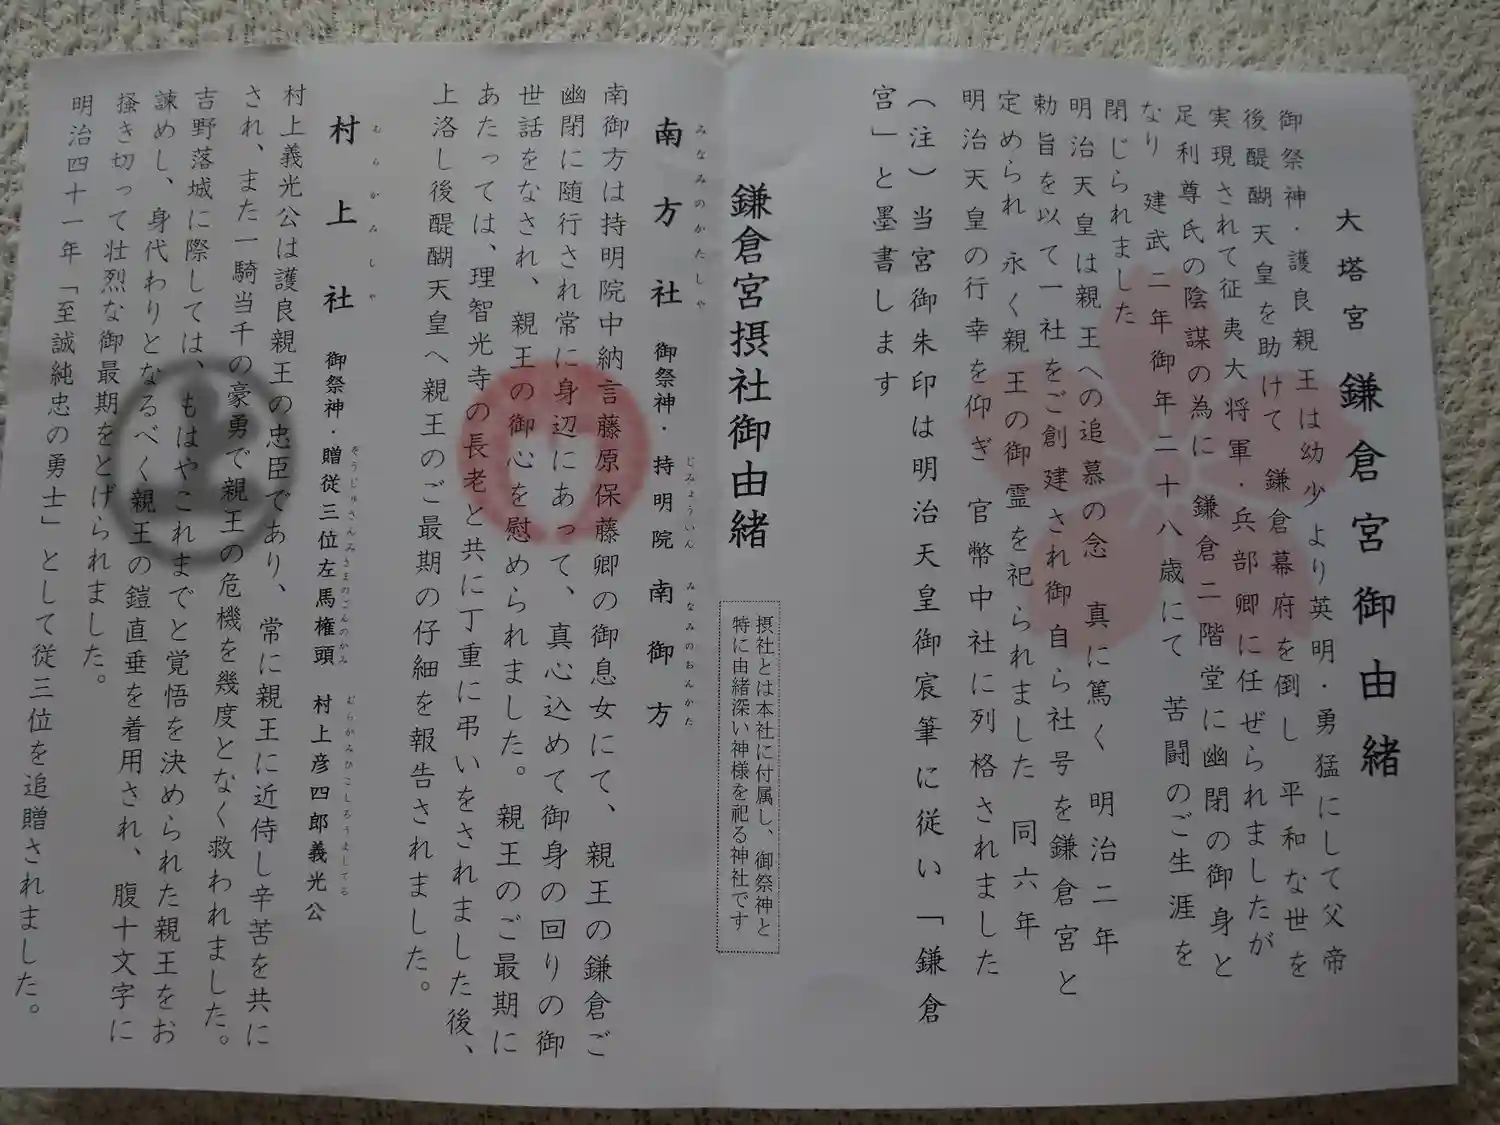 大塔宮 鎌倉宮御由緒
御祭神・護良親王は幼少より英明・勇猛にして父帝
後醍醐天皇を助けて 鎌倉幕府を倒し 平和な世を
実現されて征夷大将軍・兵部卿に任ぜられましたが
足利尊氏の陰謀の為に 鎌倉二階堂に幽閉の御身と
なり 建武二年御年二十八歳にて 苦闘のご生涯を
閉じられました
明治天皇は親王への追慕の念 真に篤く 明治二年
勅旨を以て一社をご創建され御自ら社号を鎌倉宮と
定められ 永く親王の御霊を祀られました 同六年
明治天皇の行幸を仰ぎ 官幣中社に列格されました
（注）当宮御朱印は明治天皇御宸筆に従い「鎌倉
宮」と墨書します
鎌倉宮摂社御由緒
摂社とは本社に付属し、御祭神と
特に由緒深い神様を祀る神社です
みなみのかたしや じみょういん みなみのおんかた
南方社 御祭神・持明院 南御方
南御方は持明院中納言藤原保藤卿の御息女にて、親王の鎌倉ご
幽閉に随行され常に身辺にあって、真心込めて御身の回りの御
世話をなされ、親王の御心を慰められました。親王のご最期に
あたっては、理智光寺の長老と共に丁重に弔いをされました後、
上洛し後醍醐天皇へ親王のご最期の仔細を報告されました。
むらかみしや ぞうじゅさんみさまのごんのかみ むらかみひこしろうよしてる
村上社 御祭神・贈従三位左馬権頭 村上彦四郎義光公
村上義光公は護良親王の忠臣であり、常に親王に近侍し辛苦を共に
され、また一騎当千の豪勇で親王の危機を幾度となく救われました。
吉野落城に際しては、もはやこれまでと覚悟を決められた親王をお
諫めし、身代わりとなるべく親王の鎧直垂を着用され、腹十文字に
掻き切って壮烈な御最期をとげられました。
明治四十一年「至誠純忠の勇士」として従三位を追贈されました。